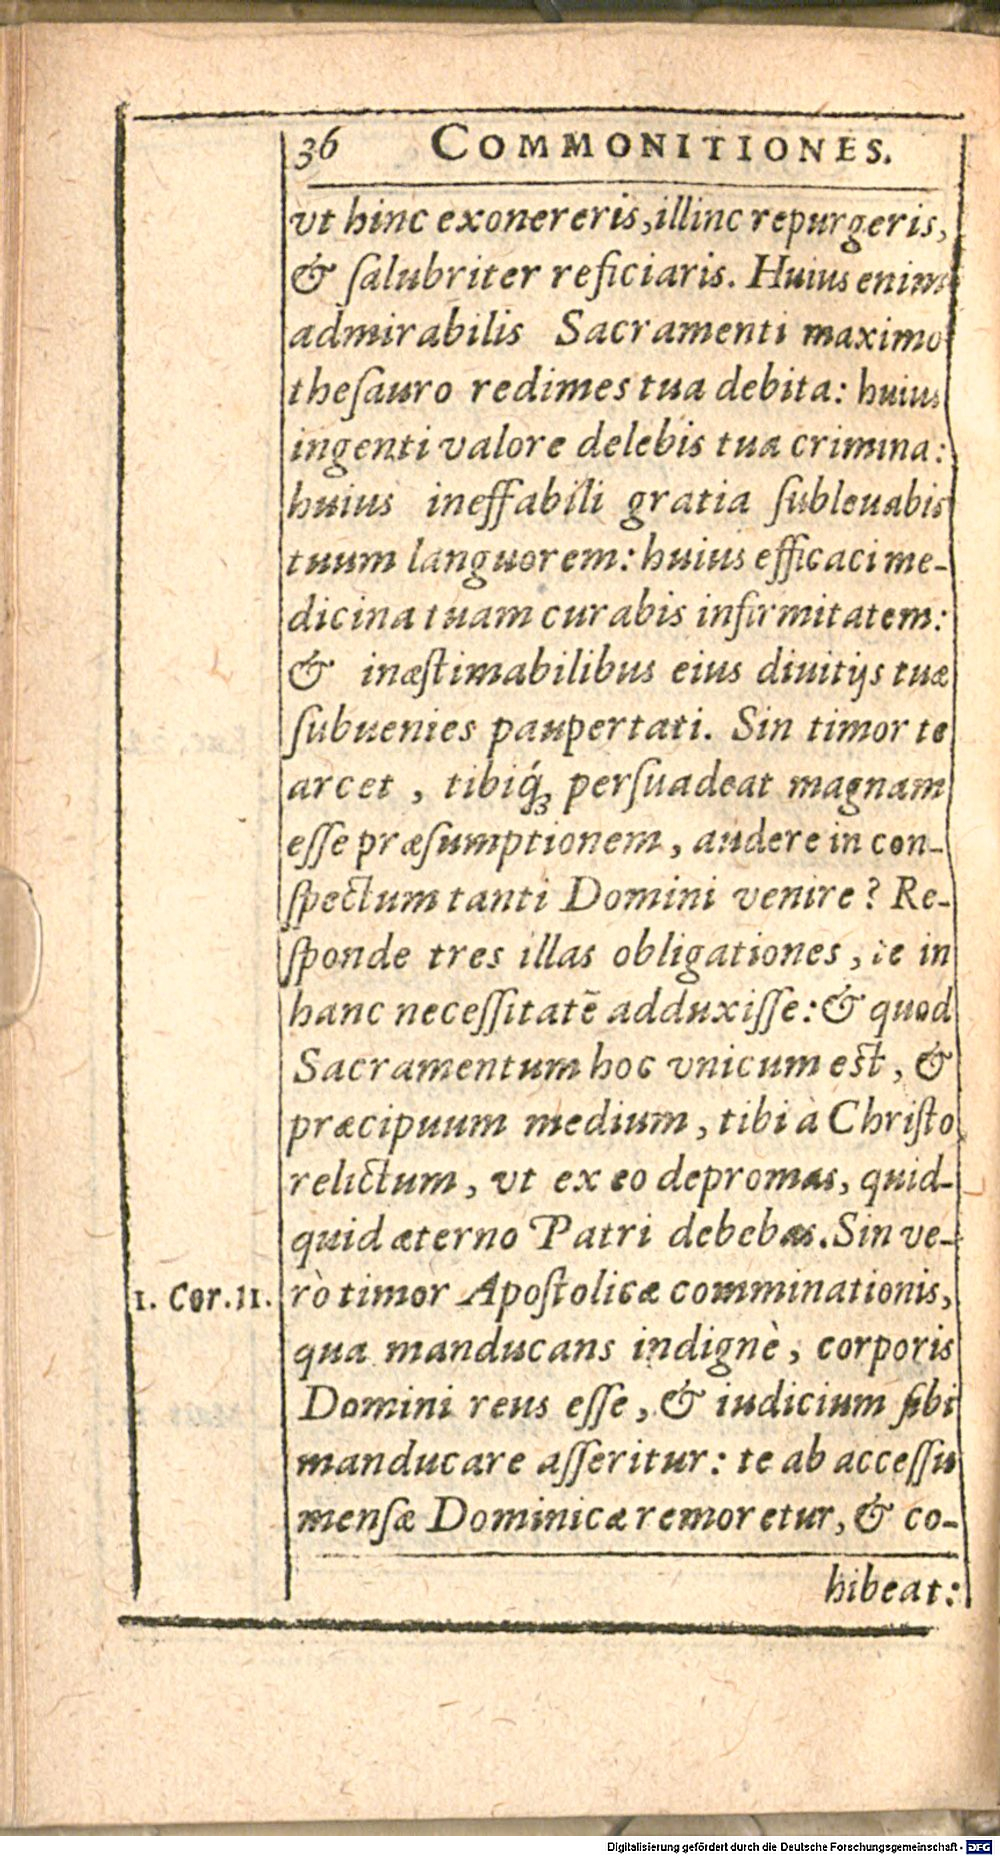 36 COMMONITIONES.
vt hinc exonereris, illinc repurgeris,
& ſalubriter reficiaris. Huius enim
admirabilis Sacramenti maximo
theſauro redimes tua debita: huius
ingenti valore delebis tua crimina:
huius ineffabili gratia ſubleuabis
tuum languorem: huius efficaci me-
dicina tuam curabis infirmitatem:
& inæſtimabilibus eius diuitijs tuæ
ſubuenies paupertati. Sin timor te
arcet, tibiq́ꝫ perſuadeat magnam
eſſe præſumptionem, audere in con-
ſpectum tanti Domini venire? Re-
ſponde tres illas obligationes, te in
hanc neceſſitatē adduxiſſe: & quod
Sacramentum hoc vnicum est, &
præcipuum medium, tibi à Chriſto
relictum, vt ex eo depromas, quid-
quid æterno Patri debebas. Sin ve-
1. Cor. 11. rò timor Apoſtolicæ comminationis,
qua manducans indignè, corporis
Domini reus eſſe, & iudicium ſibi
manducare aſſeritur: te ab acceſſu
menſæ Dominicæ remoretur, & co-
hibeat:
Digitalisierung gefördert durch die Deutsche Forschungsgemeinschaft - DFG